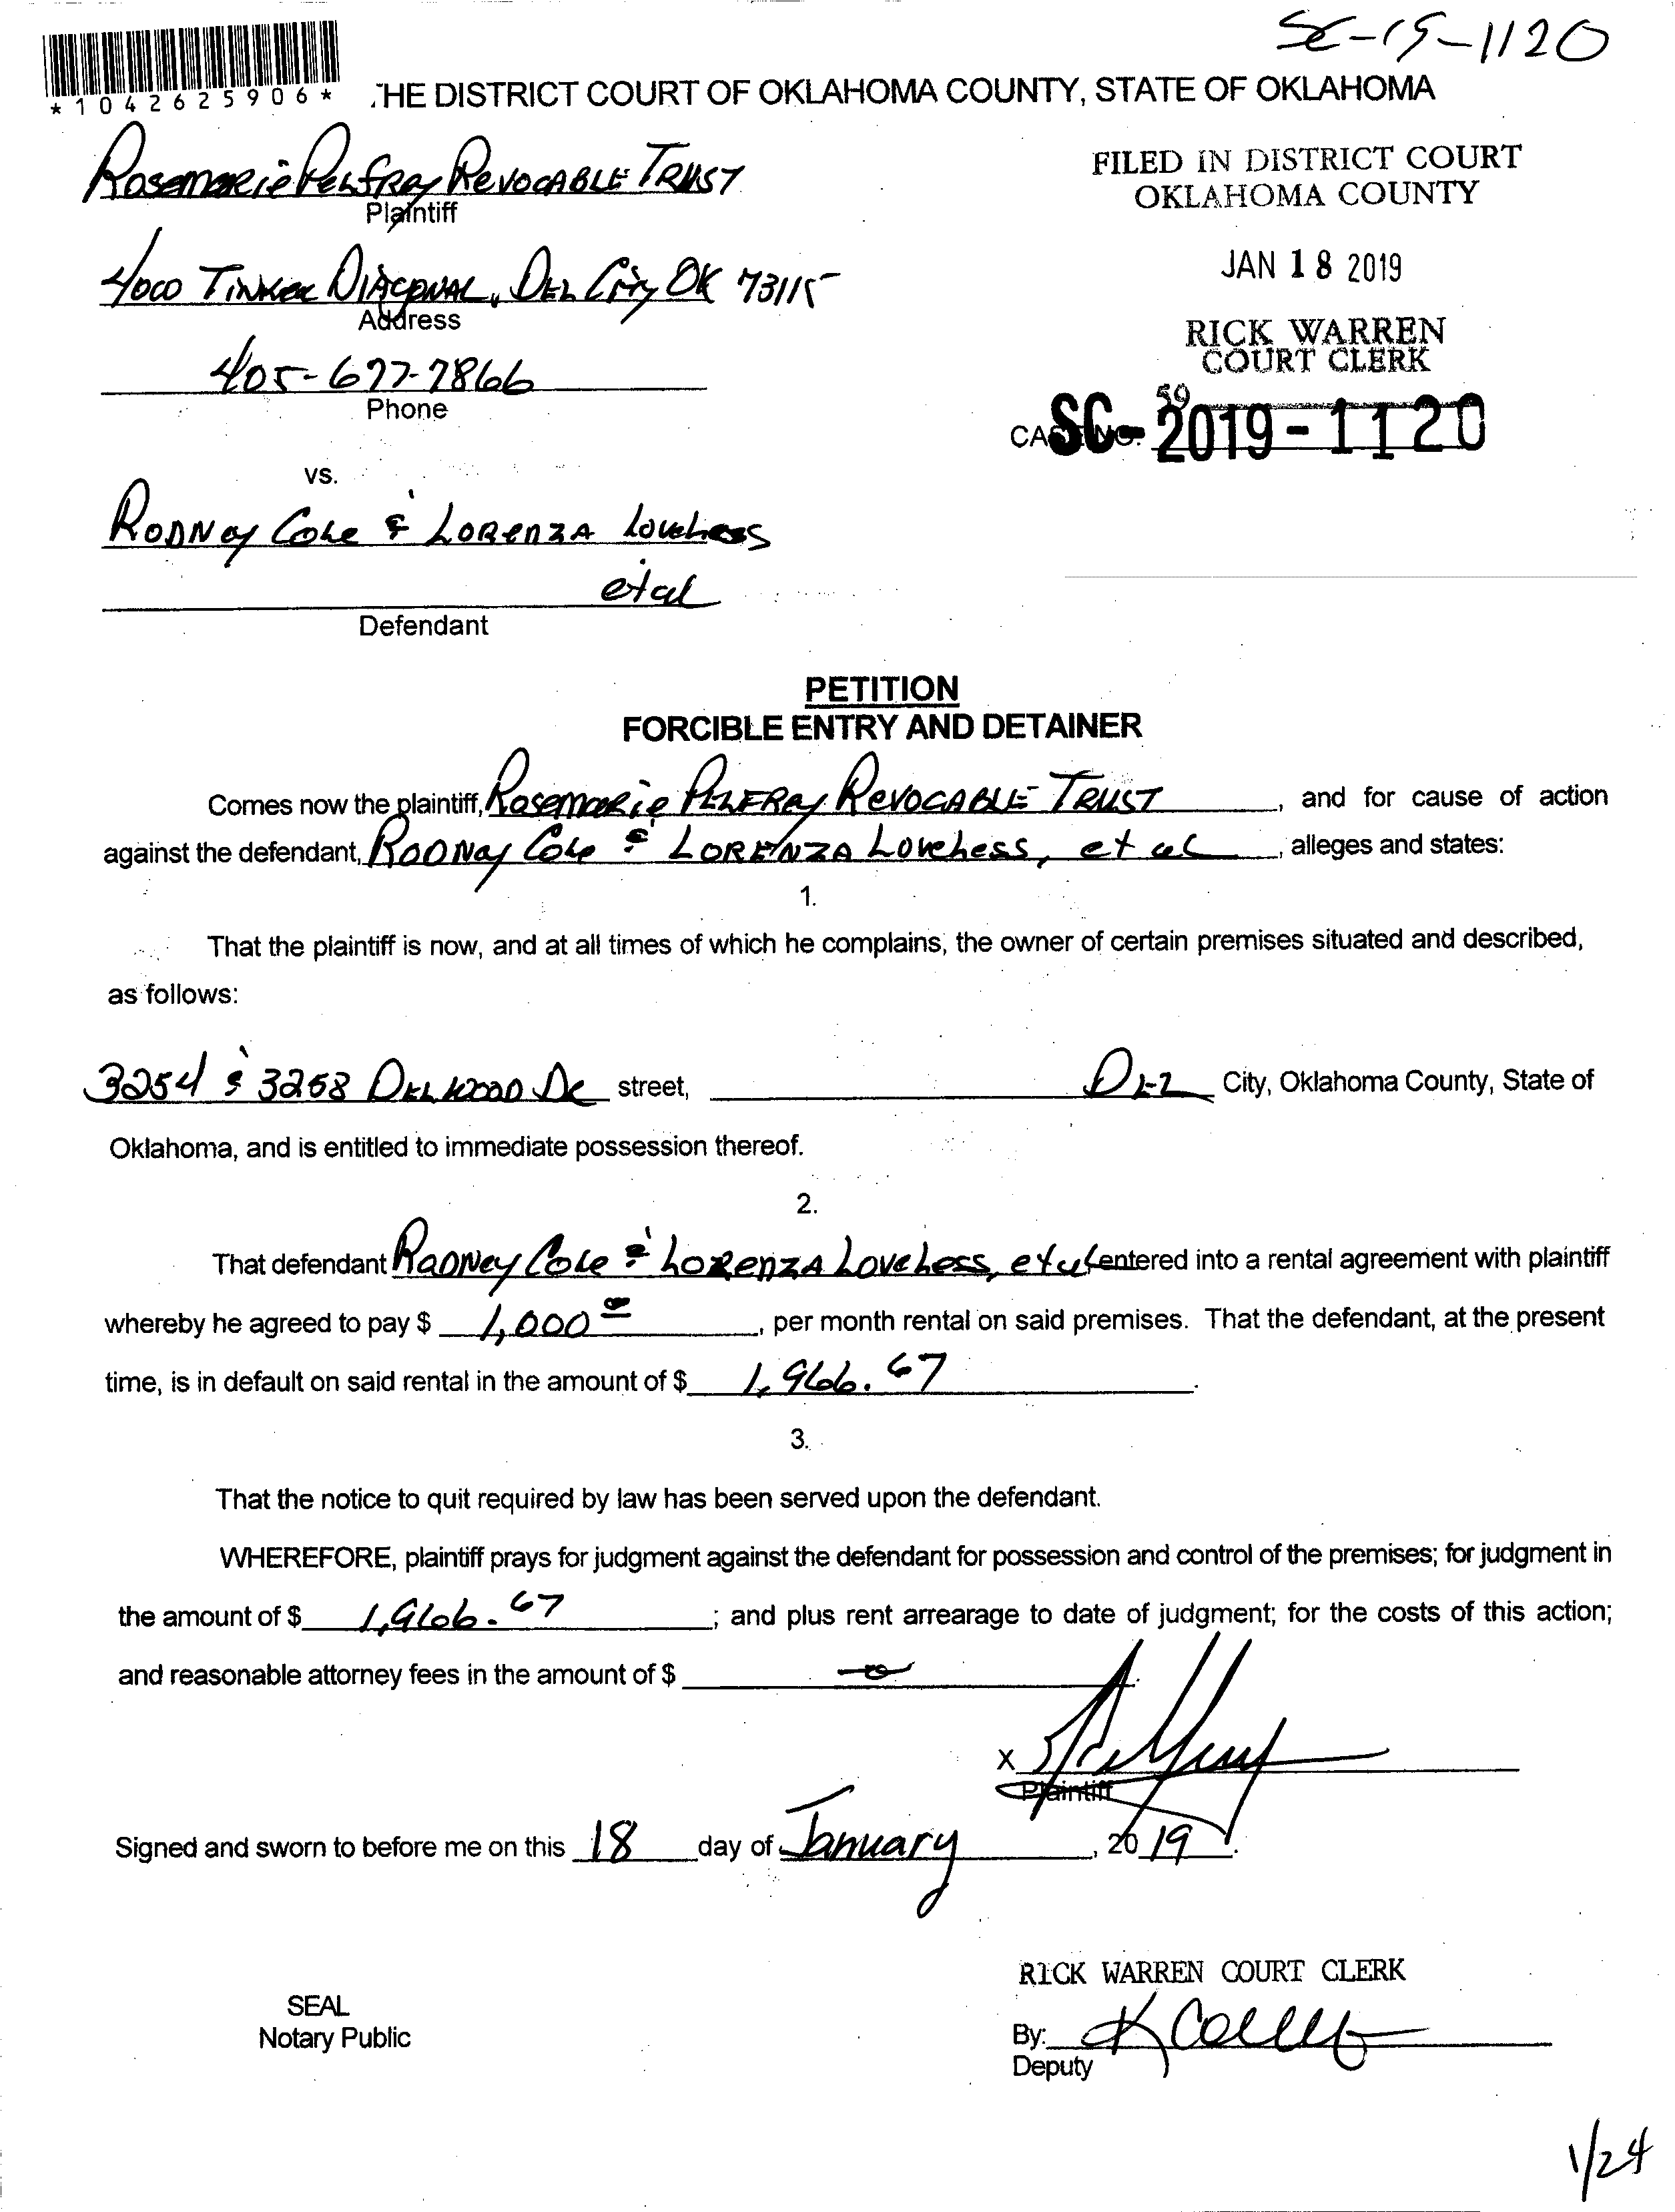 SC-19-1120
*1042625906*
THE DISTRICT COURT OF OKLAHOMA COUNTY, STATE OF OKLAHOMA
Rosemarie Pelfrey Revocable Trust
Plaintiff
FILED IN DISTRICT COURT
OKLAHOMA COUNTY
4000 Tinker Diagonal, Del City OK 73115
Address
JAN 18 2019
405-677-7866
Phone
RICK WARREN
COURT CLERK
59
CASE NO. SC-2019-1120
vs.
Rodney Cole & Lorenza Loveless
et al
Defendant
PETITION
FORCIBLE ENTRY AND DETAINER
Comes now the plaintiff, Rosemarie Pelfrey Revocable Trust, and for cause of action
against the defendant, Rodney Cole & Lorenza Loveless, et al, alleges and states:
1.
That the plaintiff is now, and at all times of which he complains, the owner of certain premises situated and described,
as follows:
3254 & 3258 Delwood Dr street, Del City, Oklahoma County, State of
Oklahoma, and is entitled to immediate possession thereof.
2.
That defendant Rodney Cole & Lorenza Loveless, et al entered into a rental agreement with plaintiff
whereby he agreed to pay $ 1,000 00, per month rental on said premises. That the defendant, at the present
time, is in default on said rental in the amount of $ 1,966.67.
3.
That the notice to quit required by law has been served upon the defendant.
WHEREFORE, plaintiff prays for judgment against the defendant for possession and control of the premises; for judgment in
the amount of $ 1,966.67; and plus rent arrearage to date of judgment; for the costs of this action;
and reasonable attorney fees in the amount of $ -0-.
X
Plaintiff
Signed and sworn to before me on this 18 day of January, 2019.
RICK WARREN COURT CLERK
SEAL
Notary Public
By:
Deputy
1/24